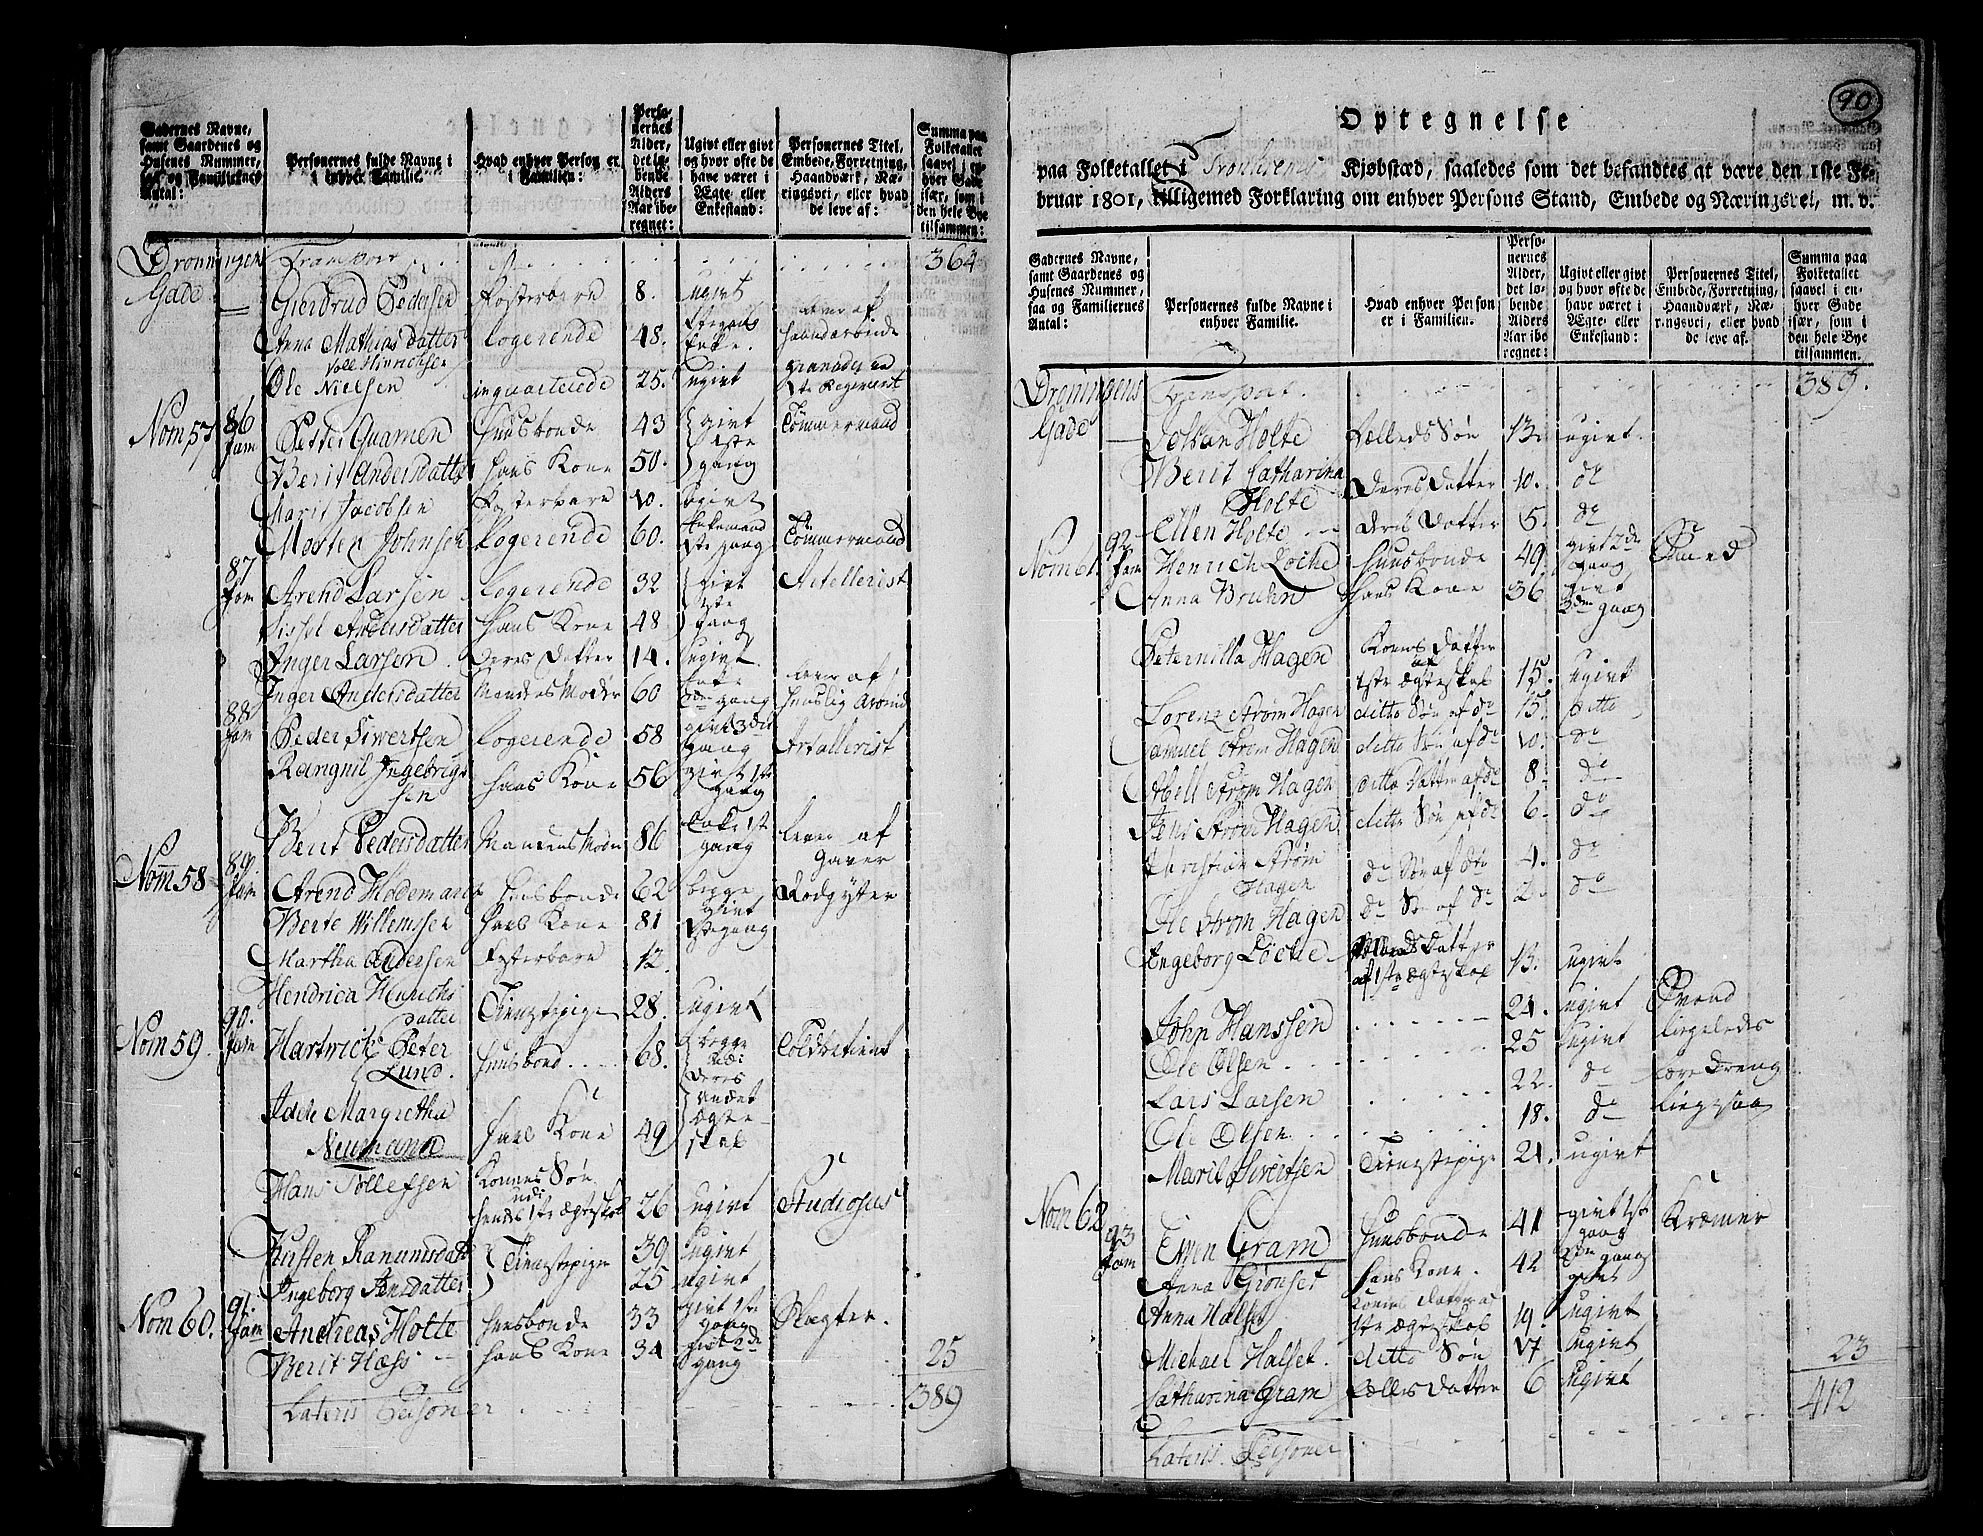 Gadernes Navne, samt Gaardenes og Husenes Nummer, saa og Familiernes Antal:
Personernes fulde Navne i enhver Familie.
Hvad enhver Person er i Familien:
Personernes Alder, det løbende Alders Aar iberegnet:
Ugivt eller givt og hvor ofte de have været i Ægte- eller Enkestand:
Personernes Titel, Embede, Forretning, Haandværk, Næringsvei, eller hvad de leve af:
Summa paa Folketallet saavel i enhver Gade især, som i den hele Bye tilsammen:
Dronningens Transport 364
Gade Gjerdrud Pedersen Fosterbarn 8. ugivt
Anna Mathiasdatter Logerende 48. Enke lever af Haandarbeide
Ole Nielsen inquarterede 25. ugivt
Nom 57 86 fam Petter Quamen Huusbonde 43 givt Tømmermand
Berit Andersdatter hans Kone 50. 1ste gang
Marit Jacobsen Fosterbarn 10. ugivt
Morten Johnsen Logerende 60. Enkemand 1ste gang Tømmermand
87 fam Arend Larsen Logerende 32 givt Artellerist
Sissel Andersdatter hans Kone 48 1ste gang
Inger Larsen Deres Datter 14. ugivt
Inger Andersdatter Mandens Moder 60 Enke gang lever af huuslig Arbeid
88 fam Peder Siwertsen Logerende 58 givt 3die gang Artellerist
Rangnil Ingebrigtsen hans Kone 56 givt 1ste gang
Berit Pedersdatter Mandens Moder 86 Enke 1ste gang lever af Gaver
Nom 58 89 fam Arend Hodemand Huusbonde 62 begge givt Rodgyter
Berte Willemssen hans Kone 81 1ste gang
Martha Andersen Fosterbarn 12.
Hendrica Henrichsdatter Tienestepige 28. ugivt
Nom 59. 90. fam Hartwick Peter Lund. Huusbond 68. begge
Deres andet Ægteskab
Ide Margretha Neumand hans Kone 49
Hans Tollefsen Konens Søn udi hendes 1ste Ægteskab 26 ugivt Studiosus
Kirsten Ranumsdatter Tienestepiger 39 ugivt
Ingeborg Jensdatter 25 ugivt
Nom 60. 91. fam Andreas Holte Huusbonde 33 givt 1ste gang Slagter.
Berit Hess hans Kone 34 givt 2de gang 25
Lateris Personer 389
90
Optegnelse
paa Folketallet i Tronhiems Kjøbstæd, saaledes som det befandtes at være den 1ste Februar 1801, tilligemed Forklaring om enhver Persons Stand, Embede og Næringsvei, m. v.
Gadernes Navne, samt Gaardenes og Husenes Nummer, saa og Familiernes Antal:
Personernes fulde Navne i enhver Familie.
Hvad enhver Person er i Familien.
Personernes Alder, det løbende Alders Aar iberegnet:
Ugivt eller givt og hvor ofte de have været i Ægte- eller Enkestand:
Personernes Titel, Embede, Forretning, Haandværk, Næringsvei, eller hvad de leve af.
Summa paa Folketallet saavel i enhver Gade især, som i den hele Bye tilsammen.
Droningens Transport. 389.
Gade Johan Holte Fælleds Søn 13. ugivt.
Berit Catharina Holte Deres Datter 10. do
Ellen Holte deres Datter 5. do
Nom 61. 92. fam Henrich Løche Huusbonde 49. givt 2de gang Smed
Anna Bruhn hans Kone 36 givt gang
Peternilla Hagen Konens Datter af 1ste Ægteskab 15. ugivt
Lorenz Strøm Hagen ditto Søn af do 15. ditto
Samuel Strøm Hagen ditto Søn af do 10. do
Abell Strøm Hagen ditto Datter af do 8. do
Jens Strøm Hagen ditto Søn af do 6. do
Christian Strøm Hagen do Søn af do 4. do
Ole Strøm Hagen do Søn af do 2. do
Ingeborg Løche Mands Datter af 1ste Ægteskab 13. ugivt
John Hanssen 24. ugivt Svend
Ole Olsen 25 ugivt ligeledes
Lars Larsen 22. do Læredreng
Ole Olsen 18. do ligesaa
Marit Sivertsen Tienestepige 21. ugivt
Nom 62 93 fam Even Gram Huusbonde 41 givt 1ste gang Kræmer
Anna Grønset hans Kone. 42 gang givt
Anna Halset Konens Datter af 1ste Ægteskab 19. ugivt
Michael Halset. ditto Søn 17 ugivt
Catharina Gram Fælles Datter 6 ugivt 23
412
Lateris Personer